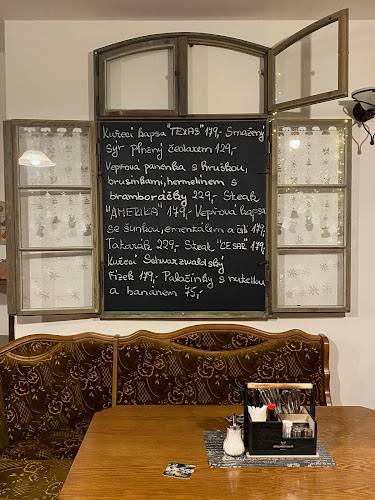 Kuřecí kapsa "TEXAS" 179,- Smažený
sýr plněný česlarem 129,-
Vepřová panenka s hruškou,
brusinkami, hermelínem s
bramboráčky 229,- Steak
"AMERIKA" 179,- Vepřová kapsa
se šunkou, ementálem a čili 179,-
Tatarák 229,- Steak "CESAR" 179,-
Kuřecí Schwarzwaldský
řízek 179,- Palačinky s nutellou
a banánem 75,-